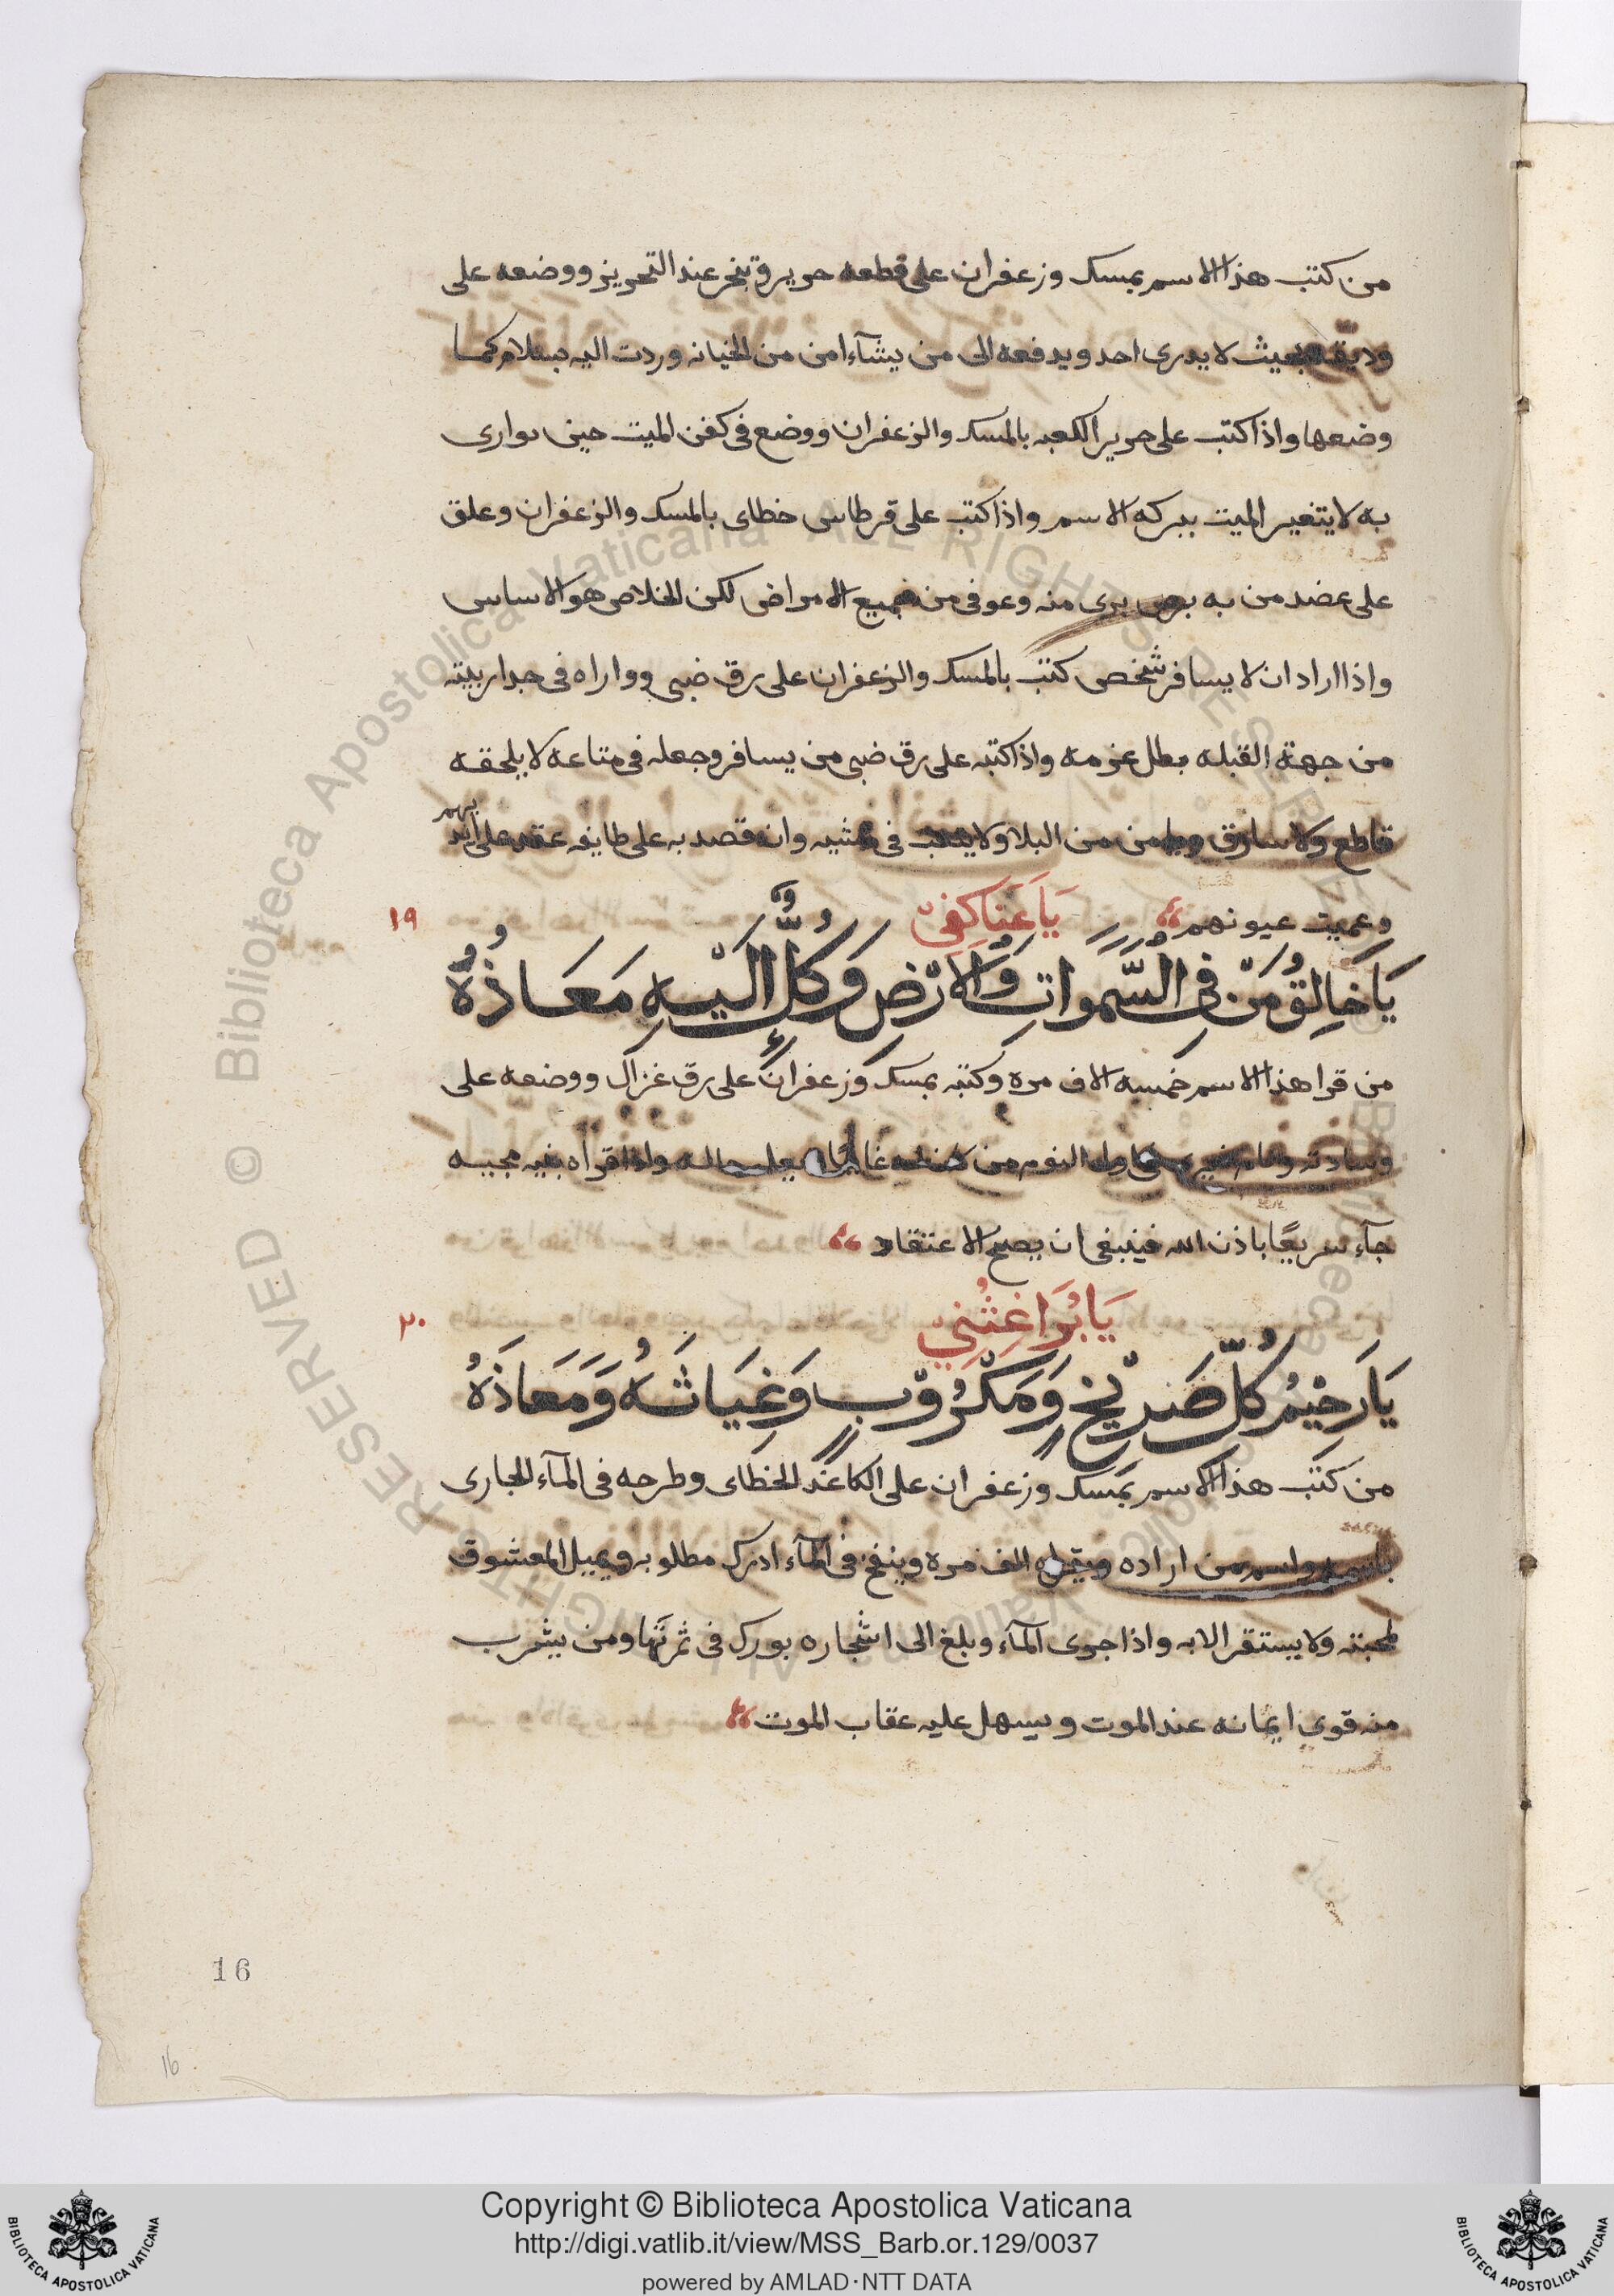 من كتب هذا الاسم بمسك وزعفران على قطعه حرير وبخر عند التحرير ووضعه على
وديعه بحيث لا يدرى احد ويدفعه الى من يشآء امن من الخيانه وردت اليه بسلام كما
وضعها واذا كتب على حرير الكعبه بالمسك والزعفران ووضع فى كفن الميت حين توارى
به لا يتغير الميت ببركه الاسم واذا كتب على قرطاس خطاى بالمسك والزعفران وعلق
على عضد من به برص برى منه وعوفى من جميع الامراض لكن الخلاص هو الاساس
واذا اراد ان لا يسافر شخص كتب بالمسك والزعفران على رق ضبى وواراه فى جدار بيته
من جهة القبله بطل عزمه واذا كتبه على رق ضبى من يسافر وجعله فى متاعه لا يلحقه
قاطع ولا سارق من البلا ولا يتعب فى مشيه وان قصد به على طايفه عقد على ايديهم
وعميت عيونهم
يَا عَنَا كفِيّ
١٩
يَا خَالِقُ مَنْ فِى السَّمَوَاتِ وَالاَرْضِ وَكُلٌّ اِلَيْهِ مَعَاذُهُ
من قرا هذا الاسم خمسه الاف مره وكتبه بمسك وزعفران على رق غزال ووضعه على
وسادته ونام النوم من غايبا يعلم حاله واذا قرأه بنيه مجيه
جآء سريعًا باذن الله فينبغى ان يصح الاعتقاد
يَا بُرَا غِثْنِيّ
٢٠
يَا رَحِيْمُ كُلِّ صَرِيْخٍ وَمَكْرُوْبٍ وَغِيَاثَهُ وَمَعَاذَهُ
من كتب هذا الاسم بمسك وزعفران على الكاغد الخطاى وطرحه فى المآء الجارى
باسمه واسم من اراده ويقراه الف مره وينفخ فى المآء ادرك مطلوبه ويميل المعشوق
لمحبته ولا يستقر الا به واذا جرى المآء وبلغ الى اشجاره بورك فى ثمرتها ومن يشرب
منه قوى ايمانه عند الموت ويسهل عليه عقاب الموت
16
16
Copyright © Biblioteca Apostolica Vaticana
http://digi.vatlib.it/view/MSS_Barb.or.129/0037
powered by AMLAD·NTT DATA